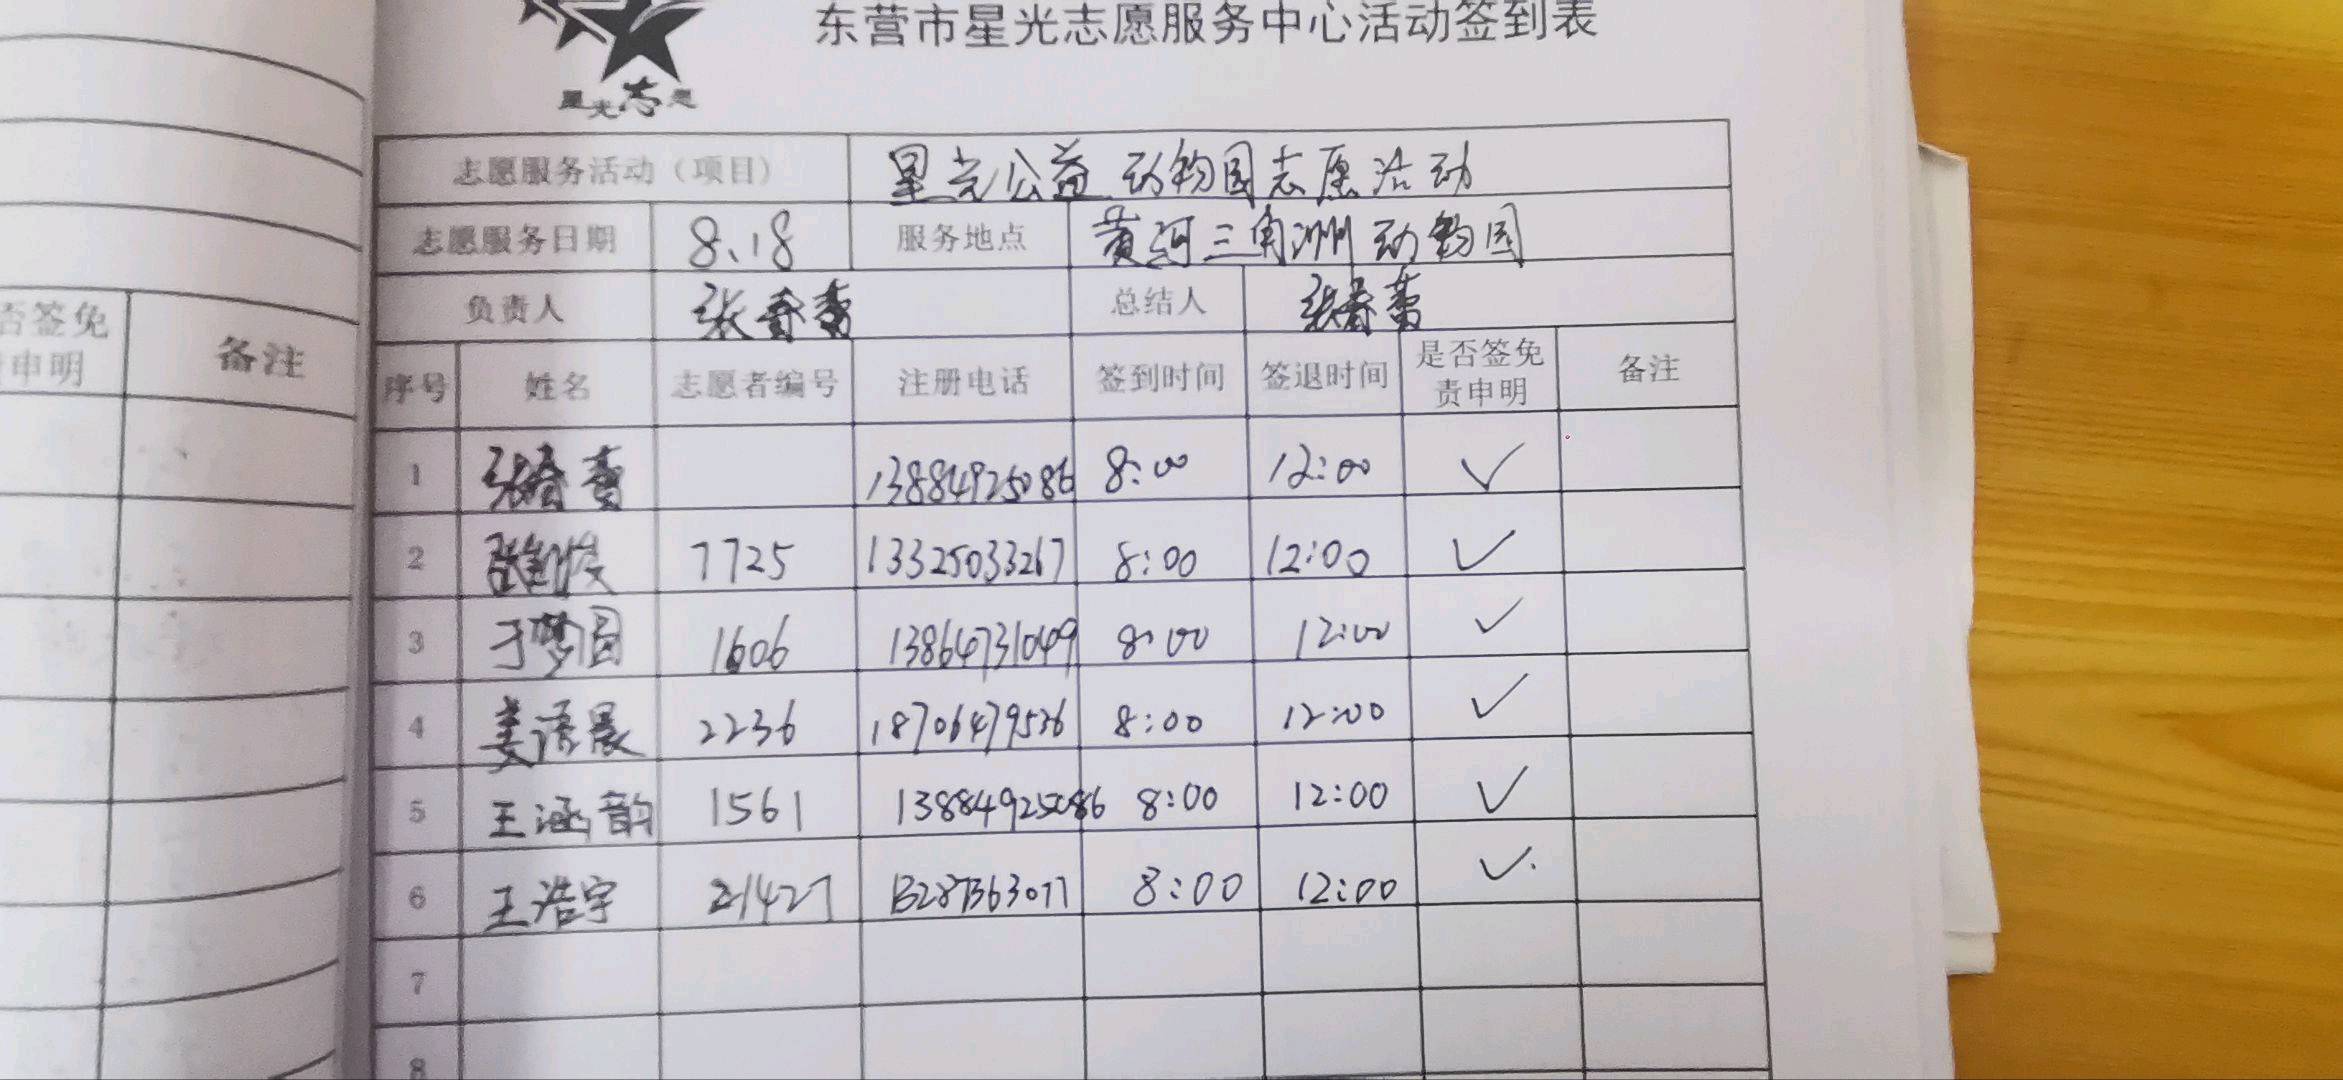 东营市星光志愿服务中心活动签到表
星光志愿
志愿服务活动（项目） 星光公益动物园志愿活动
志愿服务日期 8、18 服务地点 黄河三角洲动物园
负责人 张春蕾 总结人 张春蕾
否签免
申明 备注
序号 姓名 志愿者编号 注册电话 签到时间 签退时间 是否签免责申明 备注
1 张春蕾 13884925086 8:00 12:00 ✓
2 7725 13325033267 8:00 12:00 ✓
3 于梦圆 1606 13864731049 8:00 12:00 ✓
4 姜语晨 2236 18706479536 8:00 12:00 ✓
5 王涵韵 1561 13884925086 8:00 12:00 ✓
6 王浩宇 21427 13287363077 8:00 12:00 ✓
7
8